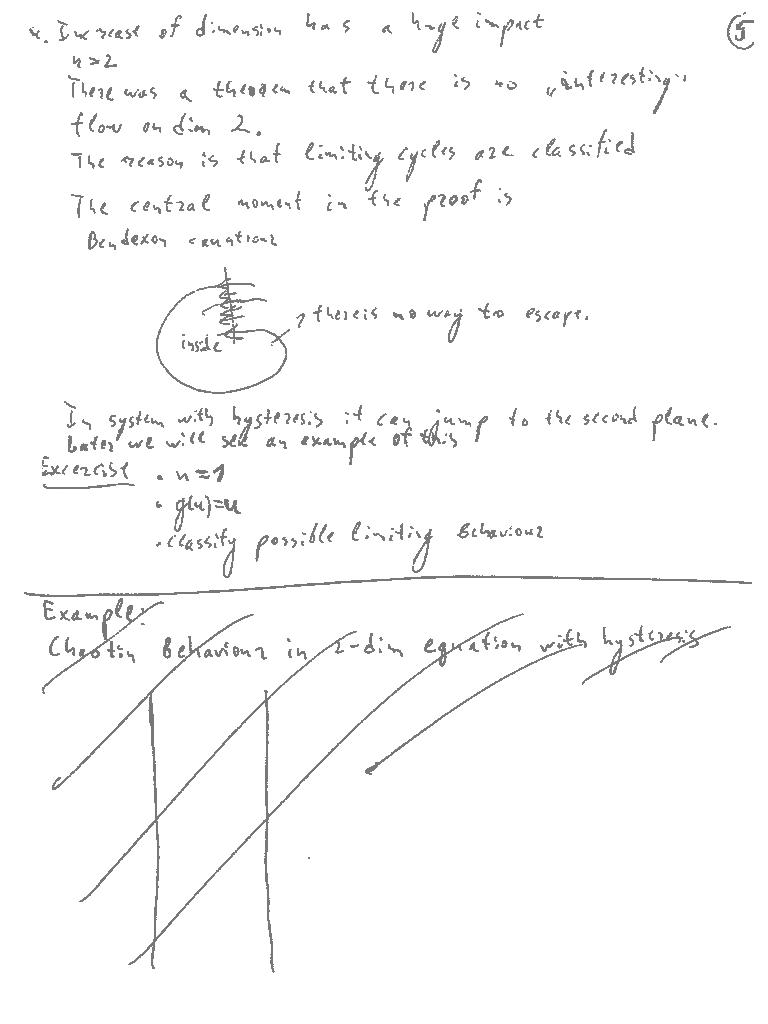 ⑤
x. Increase of dimension has a huge impact
n=2
There was a theorem that there is no „interesting"
flow on dim 2.
The reason is that limiting cycles are classified
The central moment in the proof is
Bendexon
inside
there is no way to escape.
In system with hysteresis it can jump to the second plane.
Later we will see an example of this
Excercise
• n=1
• g(u)=u
• classify possible limiting Behaviour
Example:
Chaotin Behaviour in 2-dim equation with hysteresis